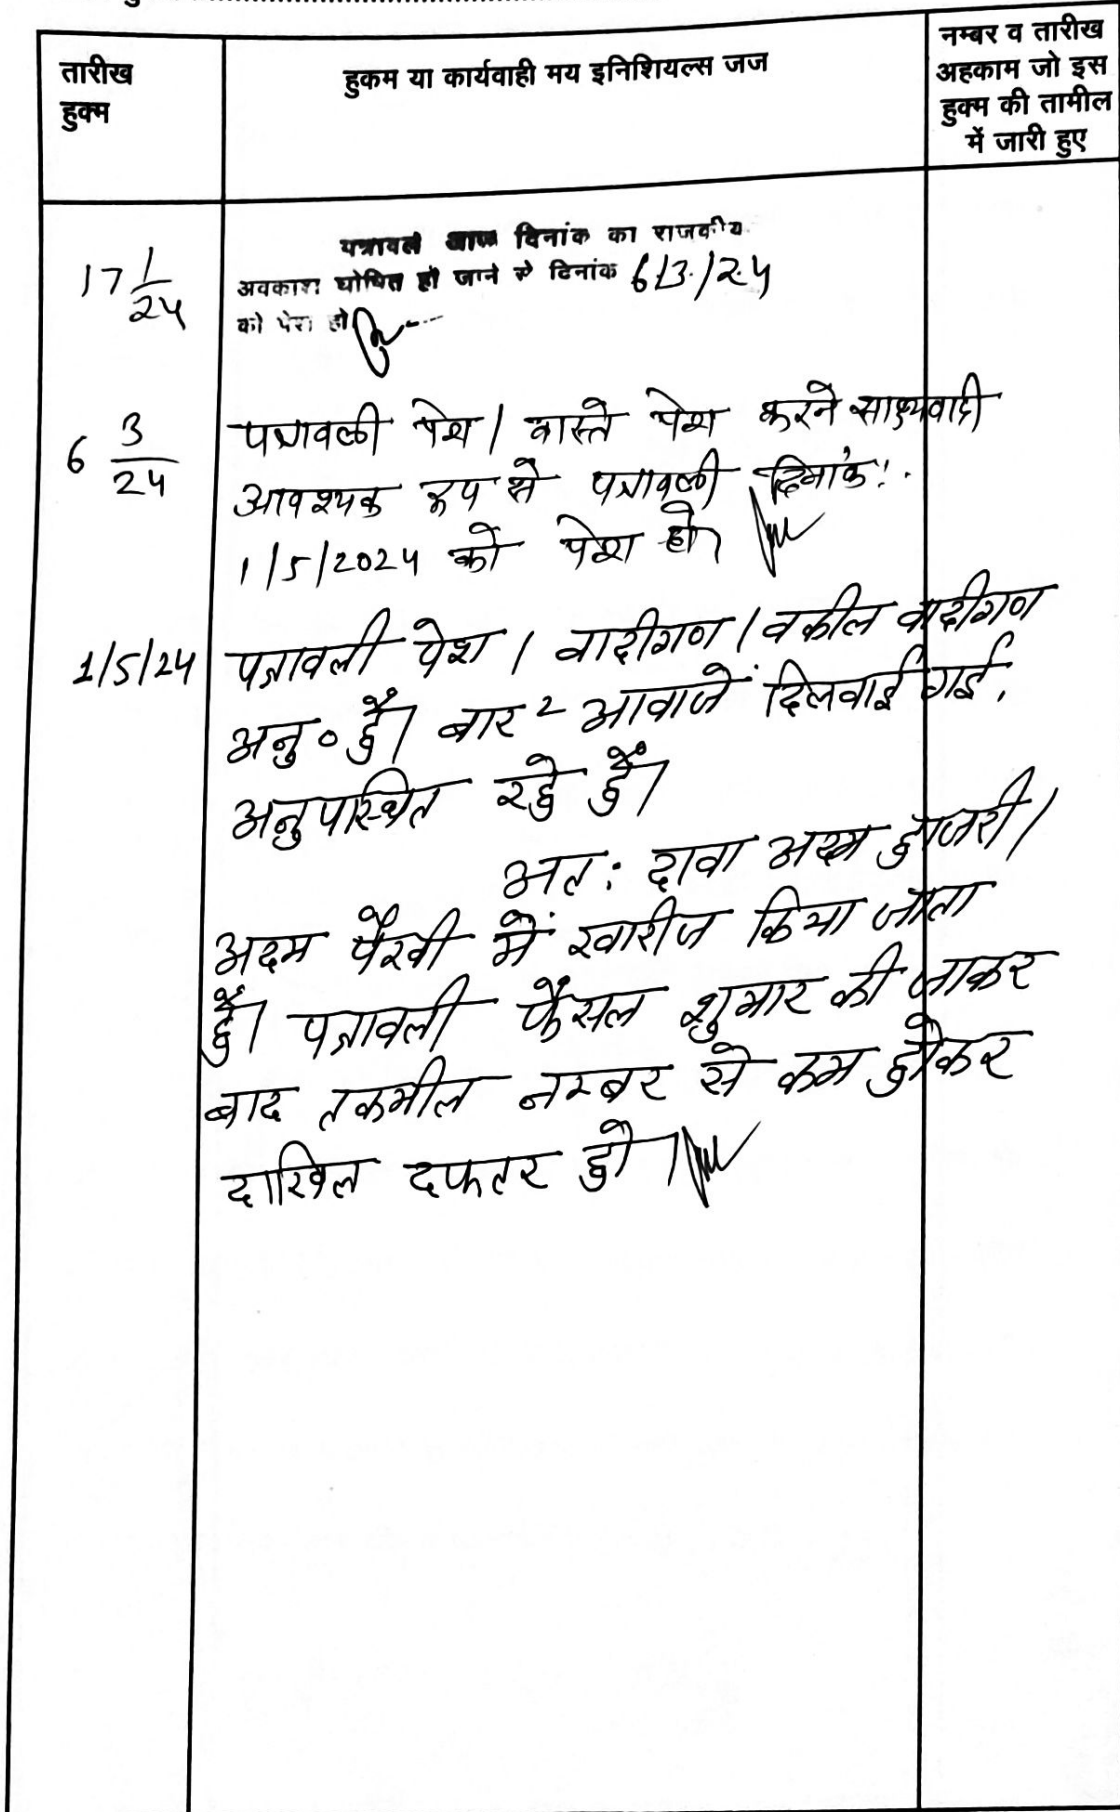 तारीख
हुक्म
हुकम या कार्यवाही मय इनिशियल्स जज
नम्बर व तारीख
अहकाम जो इस
हुक्म की तामील
में जारी हुए
17 1/24
पत्रावली आज दिनांक का राजकीय
अवकाश घोषित हो जाने से दिनांक 6/3/24
को पेश हो
6 3/24
पत्रावली पेश। वास्ते पेश करने साक्ष्यवादी
आवश्यक रूप से पत्रावली दिनांक:
1/5/2024 को पेश हो।
1/5/24
पत्रावली पेश। वादीगण/वकील वादीगण
अनु० हैं। बार 2 आवाजें दिलवाई गई,
अनुपस्थित रहे हैं।
अत: दावा अदम हाजरी/
अदम पैरवी में खारीज किया जाता
है। पत्रावली फैसल शुमार की जाकर
बाद तकमील नम्बर से कम होकर
दाखिल दफतर हो।